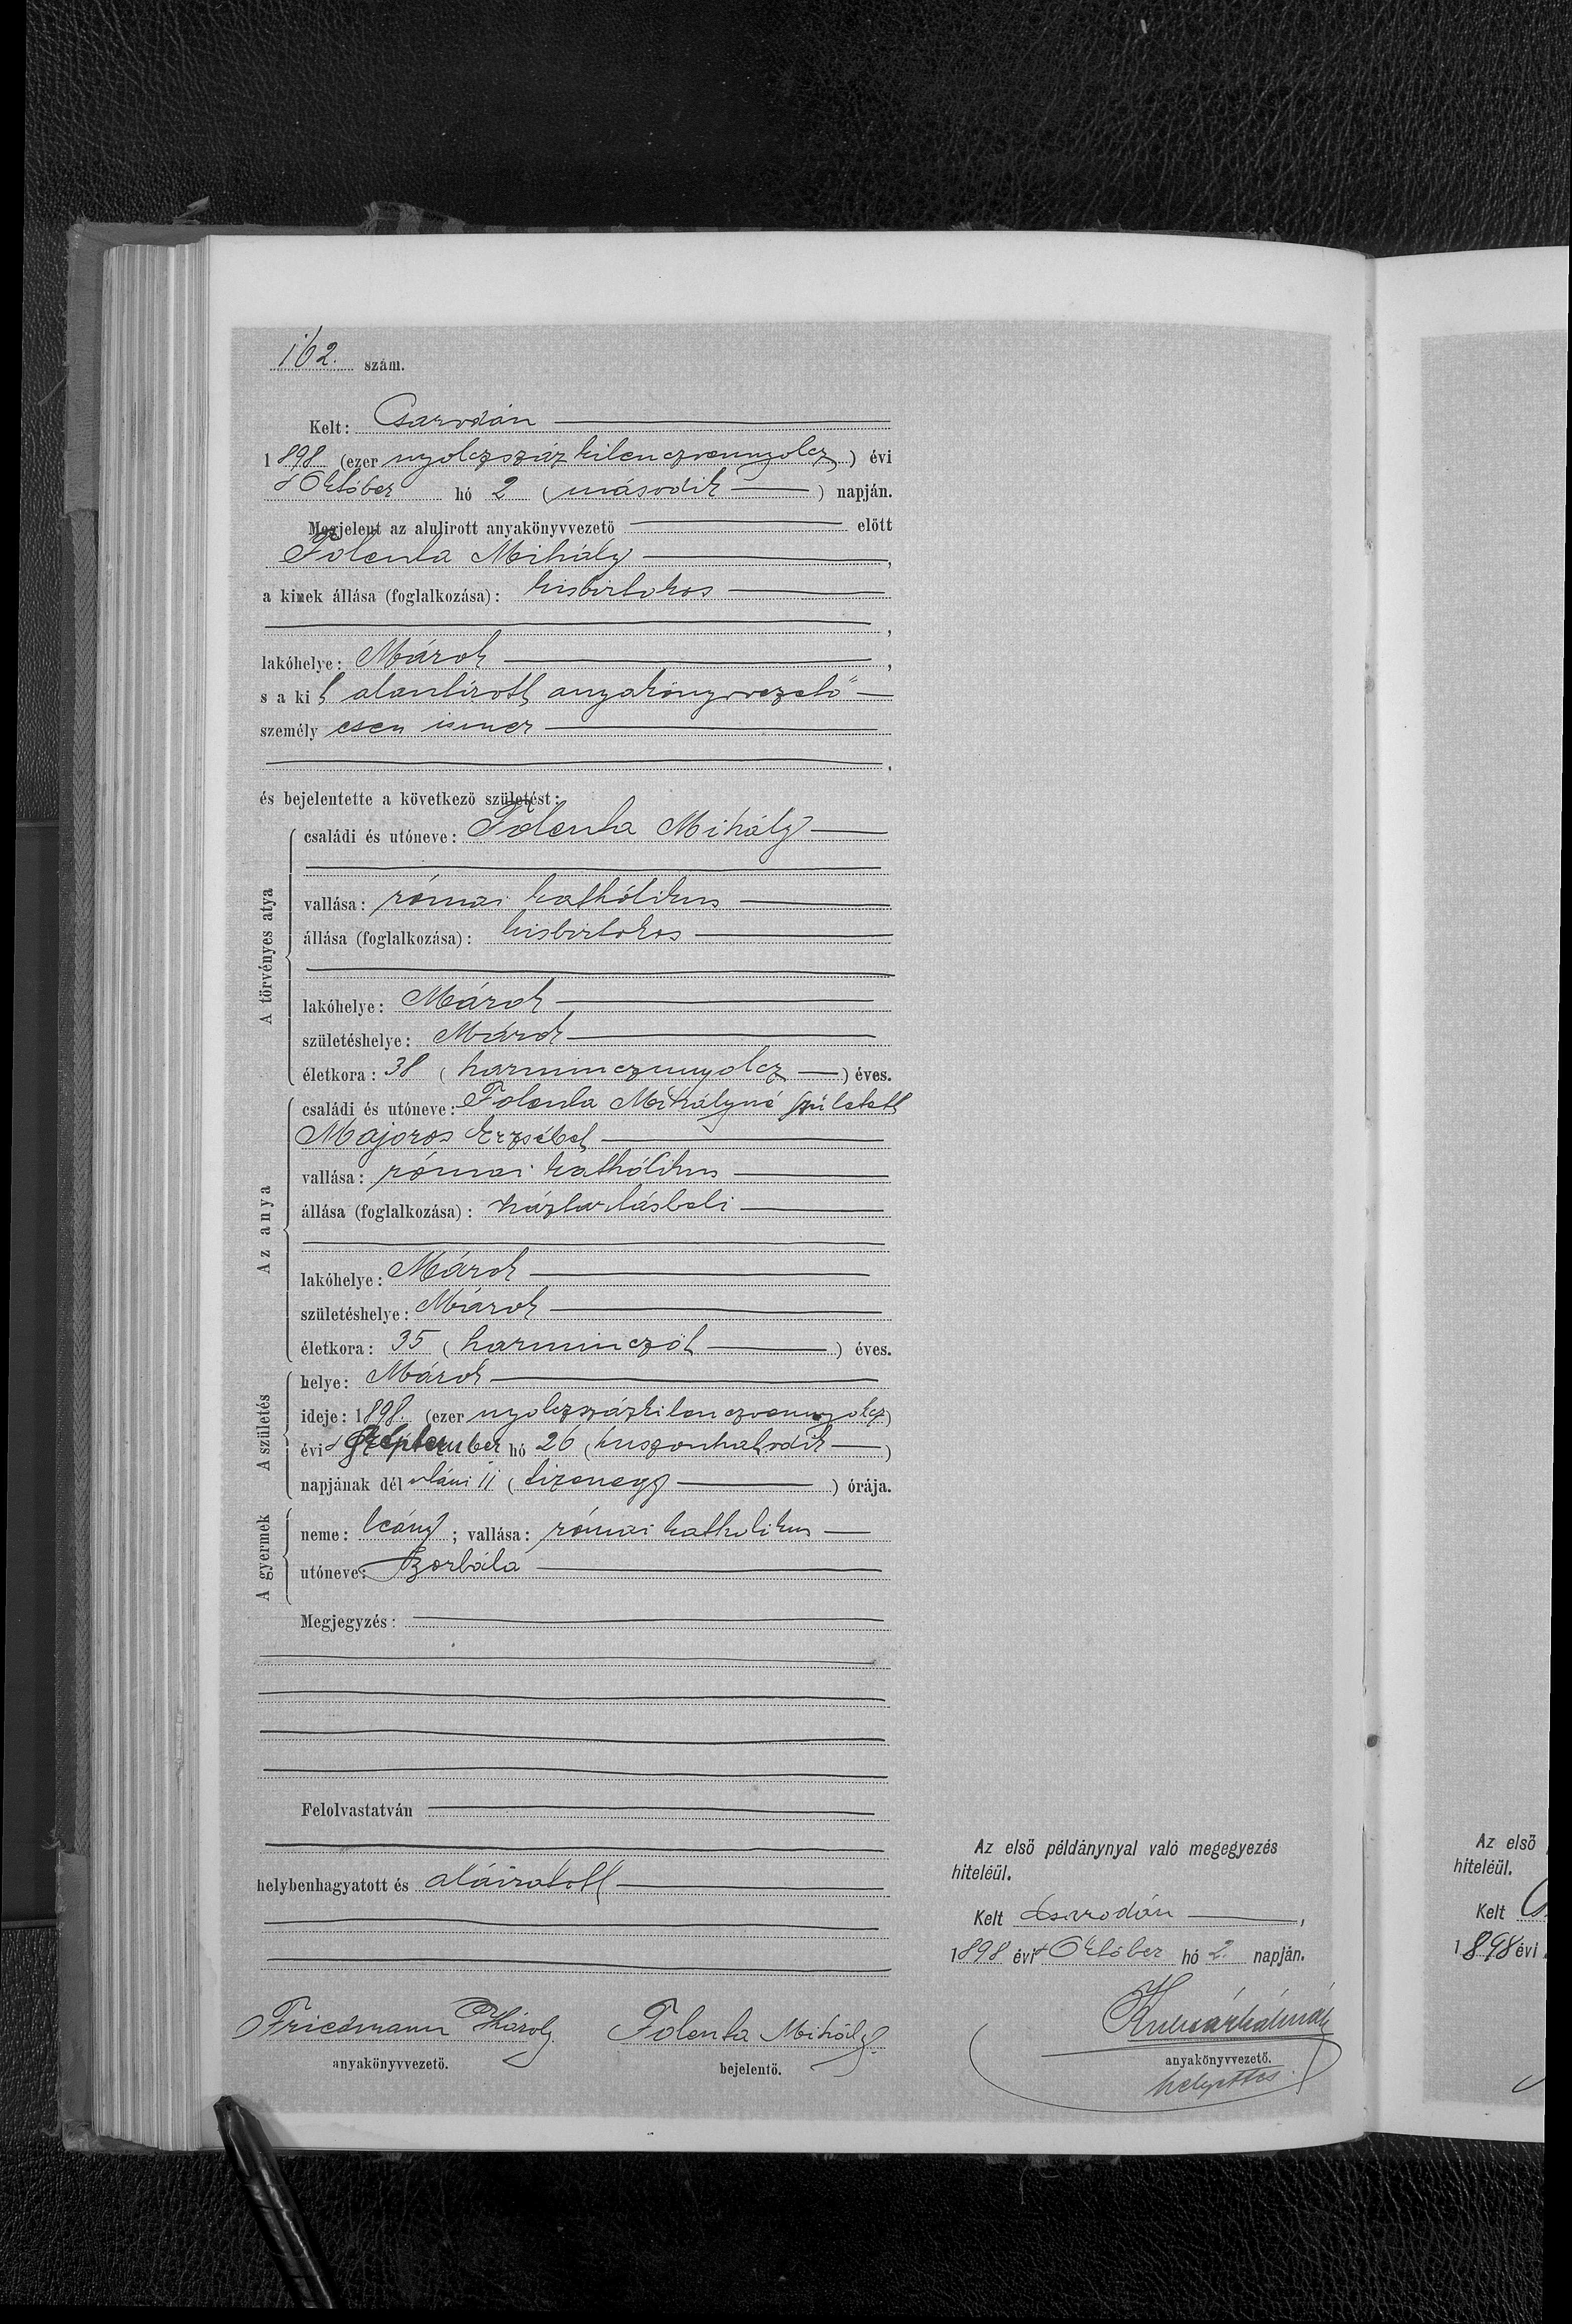 162. szám.
Kelt: Csarodán
1898 (ezer nyolczszáz kilenczvennyolcz) évi
Október hó 2 (második) napján.
Megjelent az alulirott anyakönyvvezető előtt
Tolenta Mihály,
a kinek állása (foglalkozása): kisbirtokos
,
lakóhelye: Márok,
s a kit alantirott anyakönyvvezető
személyesen ismer
.
és bejelentette a következő születést:
A törvényes atya
családi és utóneve: Tolenta Mihály
vallása: római kathólikus
állása (foglalkozása): kisbirtokos
lakóhelye: Márok
születéshelye: Márok
életkora: 38 (harmincznyolcz) éves.
Az anya
családi és utóneve: Tolenta Mihályné született
Majoros Erzsébet
vallása: római kathólikus
állása (foglalkozása): háztartásbeli
lakóhelye: Márok
születéshelye: Márok
életkora: 35 (harminczöt) éves.
A születés
helye: Márok
ideje: 1898. (ezer nyolczszázkilenczvennyolcz)
évi Szeptember hó 26 (huszonhatodik)
napjának dél utáni 11 (tizenegy) órája.
A gyermek
neme: leány; vallása: római katholikus
utóneve: Borbála
Megjegyzés:
Felolvastatván
helybenhagyatott és aláiratott
Friedmann Károly
anyakönyvvezető.
Tolenta Mihály.
bejelentő.
Az első példánynyal való megegyezés
hiteléül.
Kelt Csarodán,
1898 évi Október hó 2. napján.
anyakönyvvezető.
helyettes
Az első
hiteléül.
Kelt
1898 évi